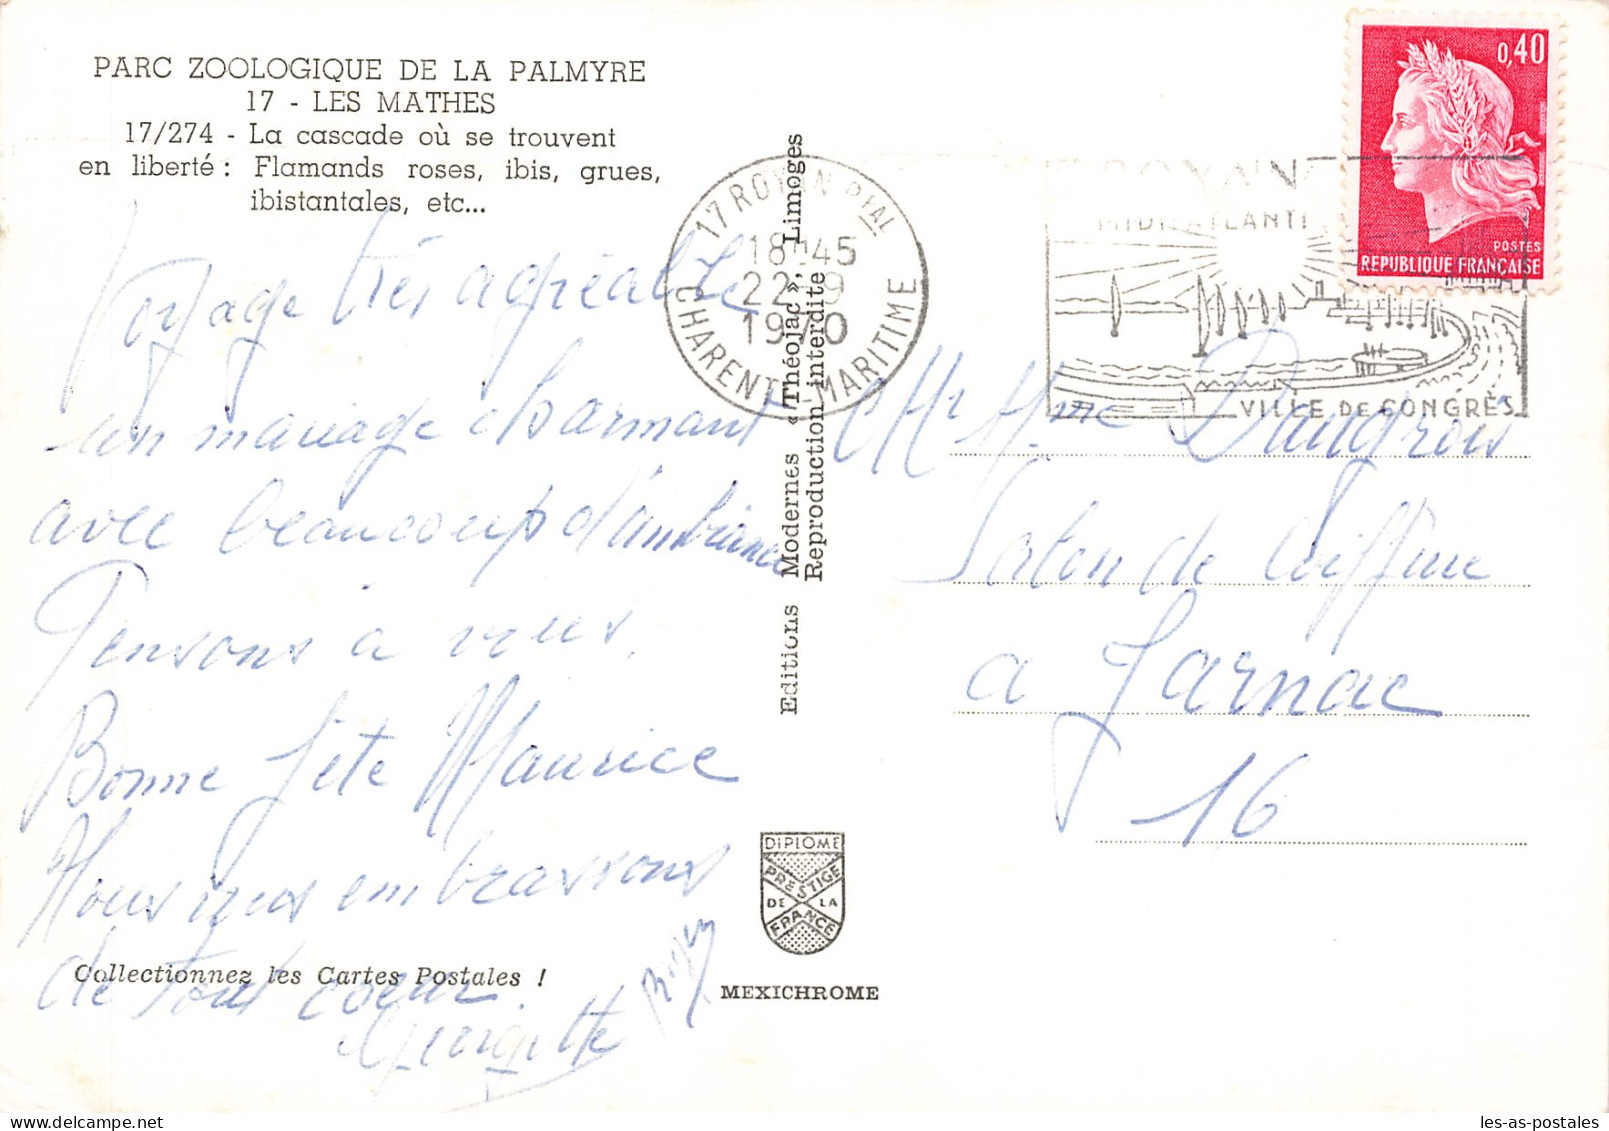 PARC ZOOLOGIQUE DE LA PALMYRE
17 - LES MATHES
17/274 - La cascade où se trouvent
en liberté : Flamands roses, ibis, grues,
ibistantales, etc...
Voyage très agréable
un mariage charmant
avec beaucoup d'ambiance
Pensons à vous.
Bonne fête Maurice
Nous vous embrassons
de tout coeur.
Georgette
Collectionnez les Cartes Postales !
Editions Modernes « Théojac », Limoges
Reproduction interdite
17 ROYAN Pal
18 H 45
22 - 9
1970
CHARENTE-MARITIME
ROYAN
MIDI ATLANTI
VILLE DE CONGRÈS
0,40
POSTES
REPUBLIQUE FRANÇAISE
Mr Mme Daugrois
Salon de Coiffure
a Jarnac
16
DIPLOME
PRESTIGE
DE LA
FRANCE
MEXICHROME
les-as-postales